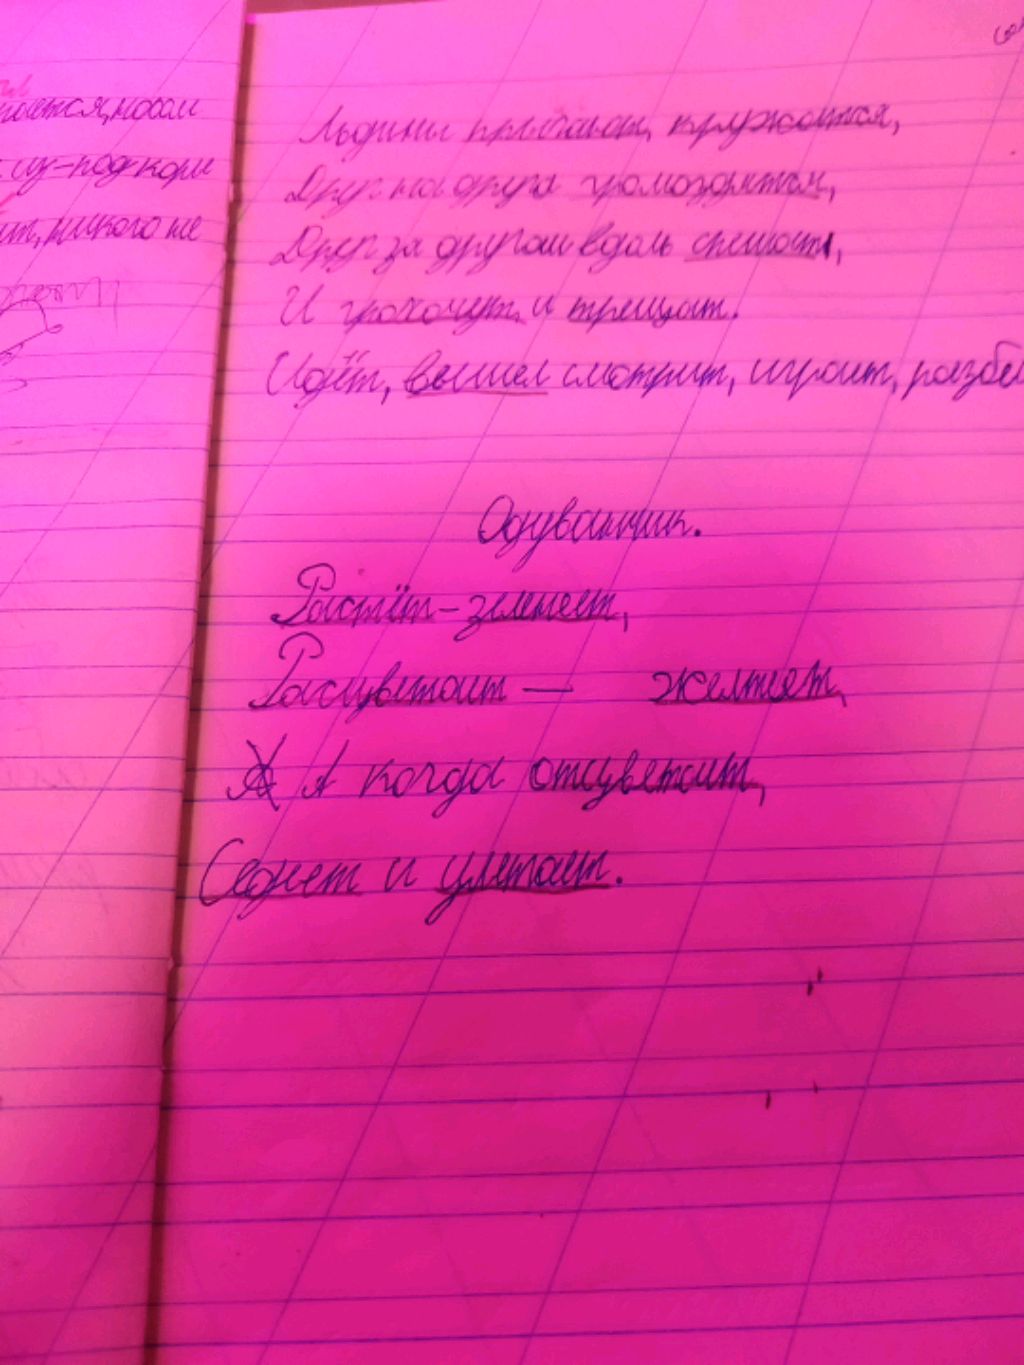 из-под коры
никого не
Льдины прыгают, кружатся,
Друг на друга громоздятся,
Друг за другом вдоль спешат,
И грохочут и трещат.
Идёт, вышел смотрит, играет,
Одуванчик.
Растёт-зеленеет,
Расцветает — желтеет,
А когда отцветает,
Седеет и улетает.